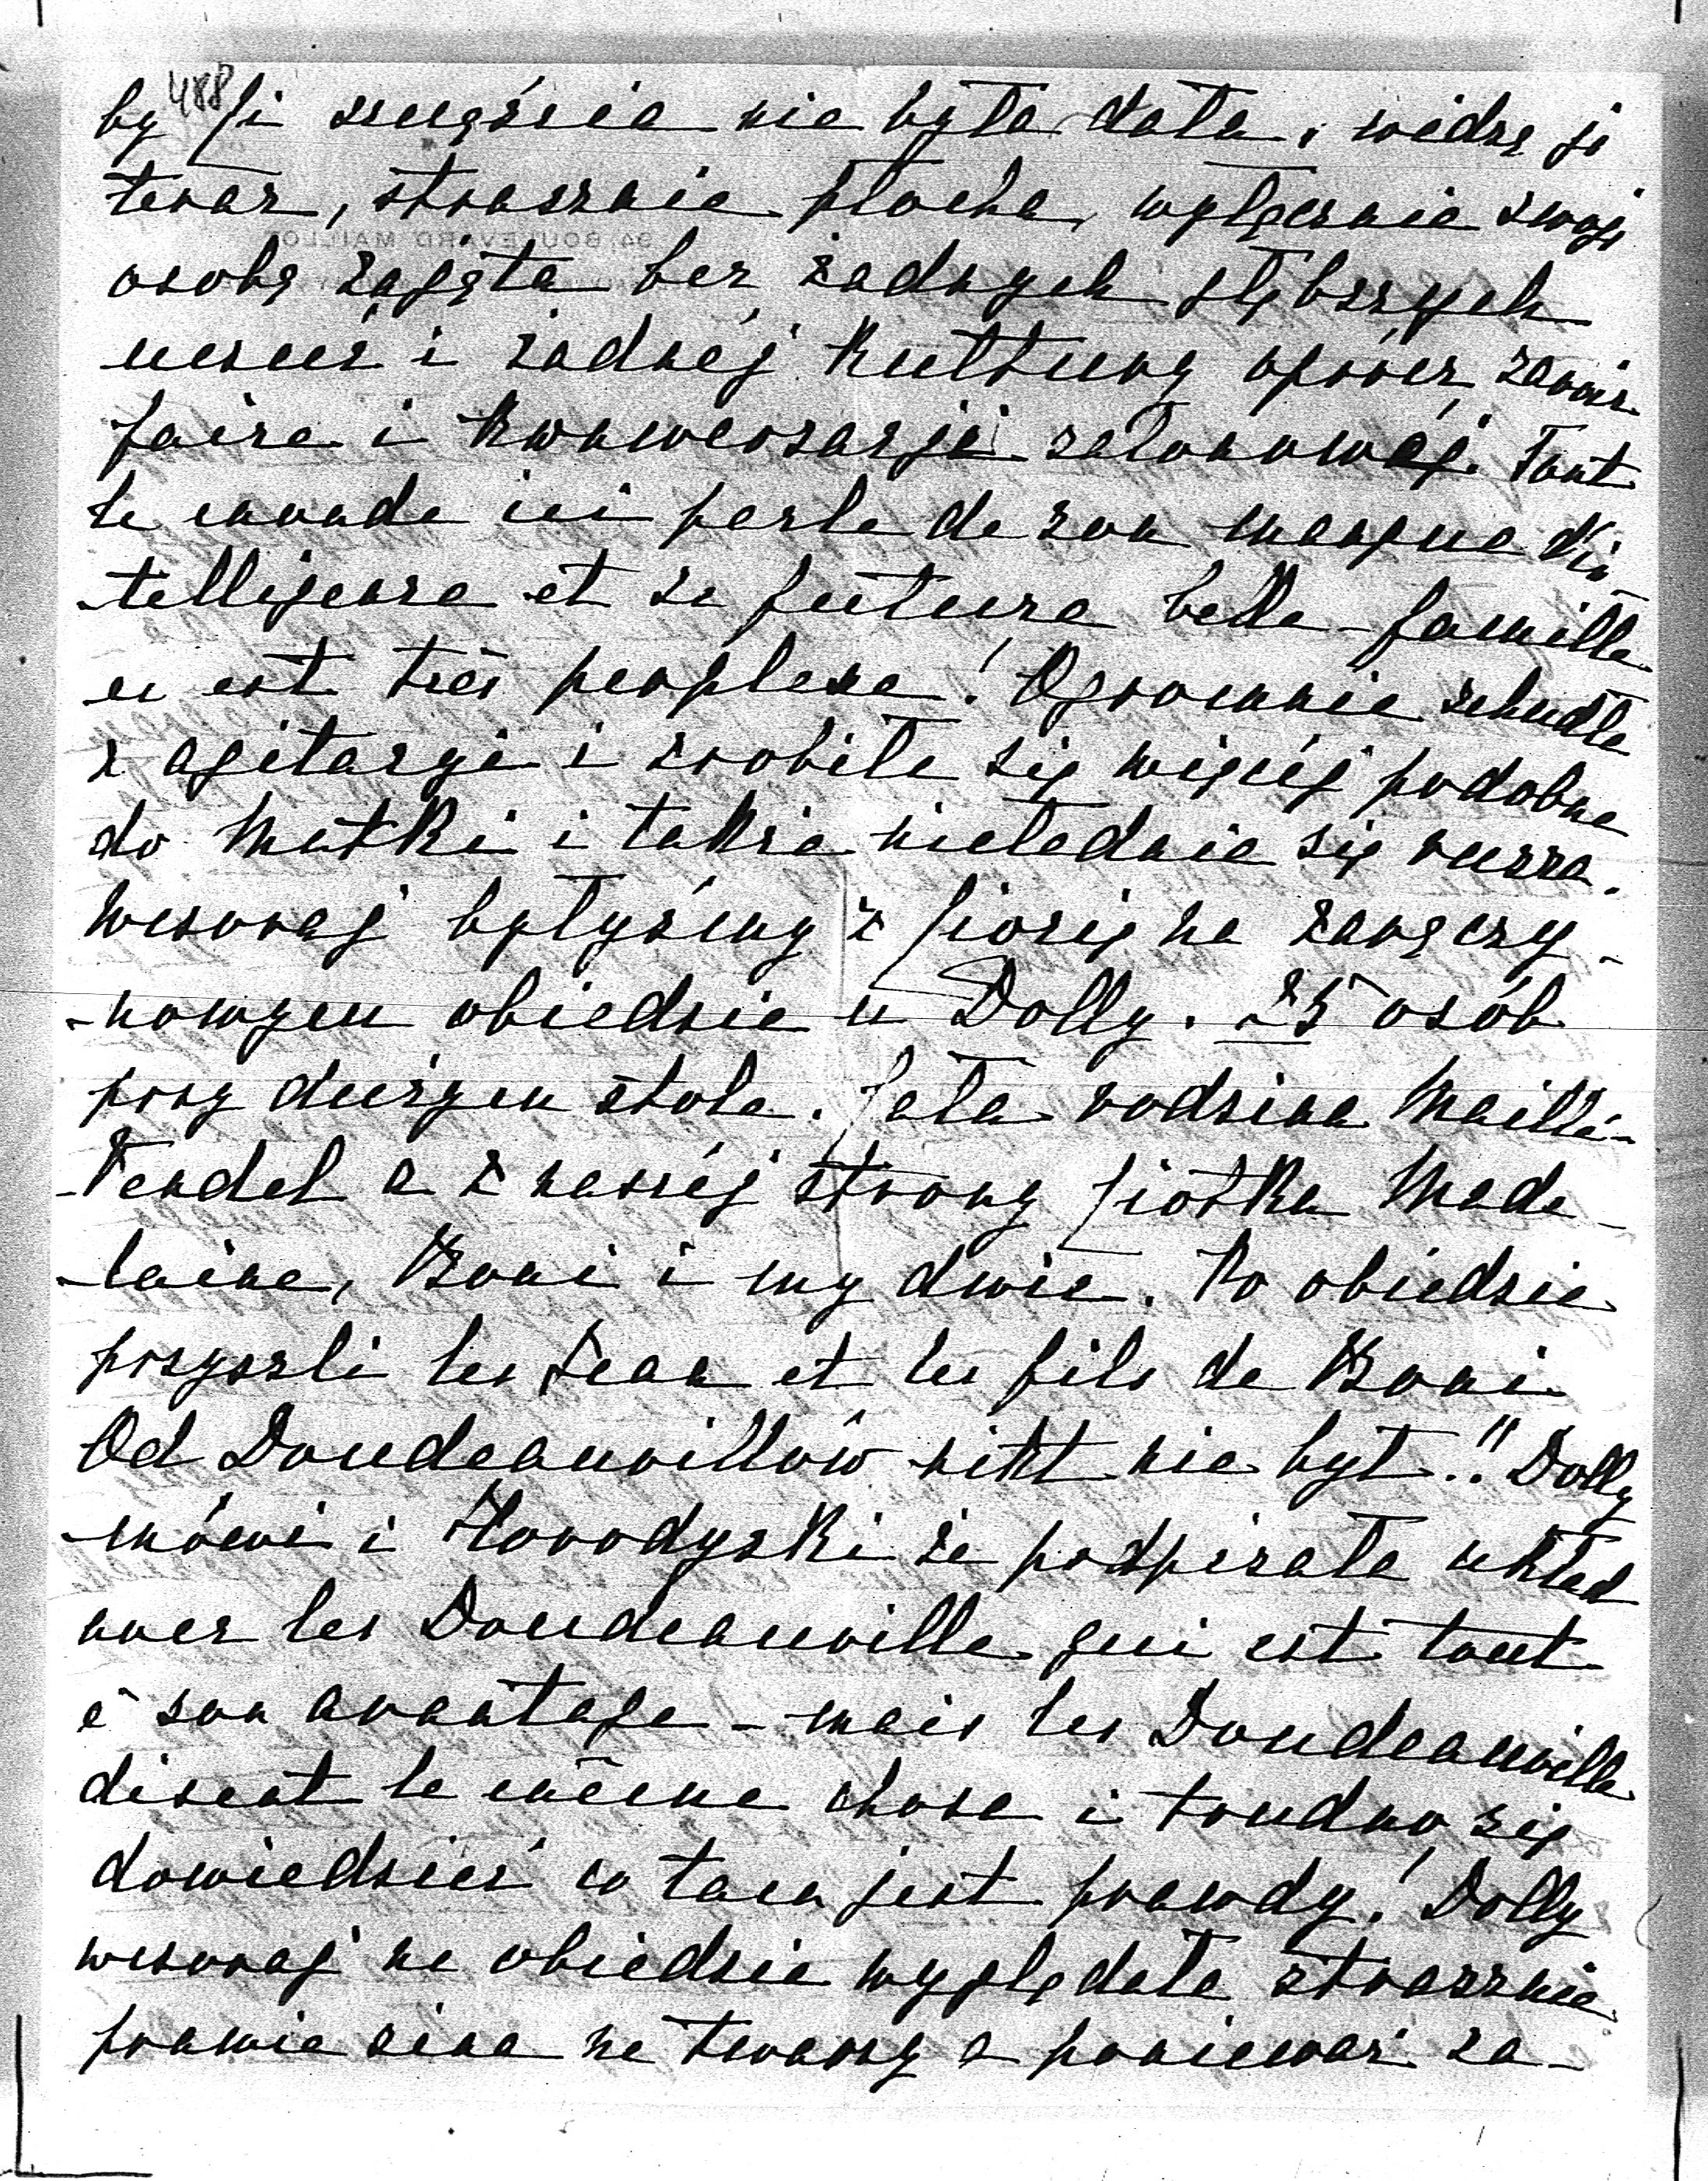 488
by ji szczęścia nie była dała. widzę ją
teraz, strasznie płocha, wyłącznie swoją
osobą zajęta bez żadnych głębszych
uczuć i żadnéj kultury oprócz savoir
faire i konwersacji salonowéj. Tout
le monde ici parle de son manque d'in
-telligence et sa future belle-famille
en est très perplexe! Ogromnie schudła
z agitacyi i zrobiła się więcéj podobna
do Matki i także nieładnie się rusza.
Wczoraj byłyśmy z Jiozią na zaręczy-
-nowym obiedzie u Dolly. 25 osób
przy dużym stole. Cała rodzina Maillé-
-Wendel a z naszéj strony Ciotka Made-
-laine, Boni i my dwie. Po obiedzie
przyszli les Jean et les fils de Boni
Od Doudeauvillów nikt nie był!! Dolly
mówi i Horodyski że podpisała układ
avec les Doudeauville qui est tout
à son avantage - mais les Doudeauville
disent la même chose i trudno się
dowiedzieć co tam jest prawdy! Dolly
wczoraj na obiedzie wyglądała strasznie
prawie sina na twarzy a ponieważ za-
94 BOULEVARD MAILLOT